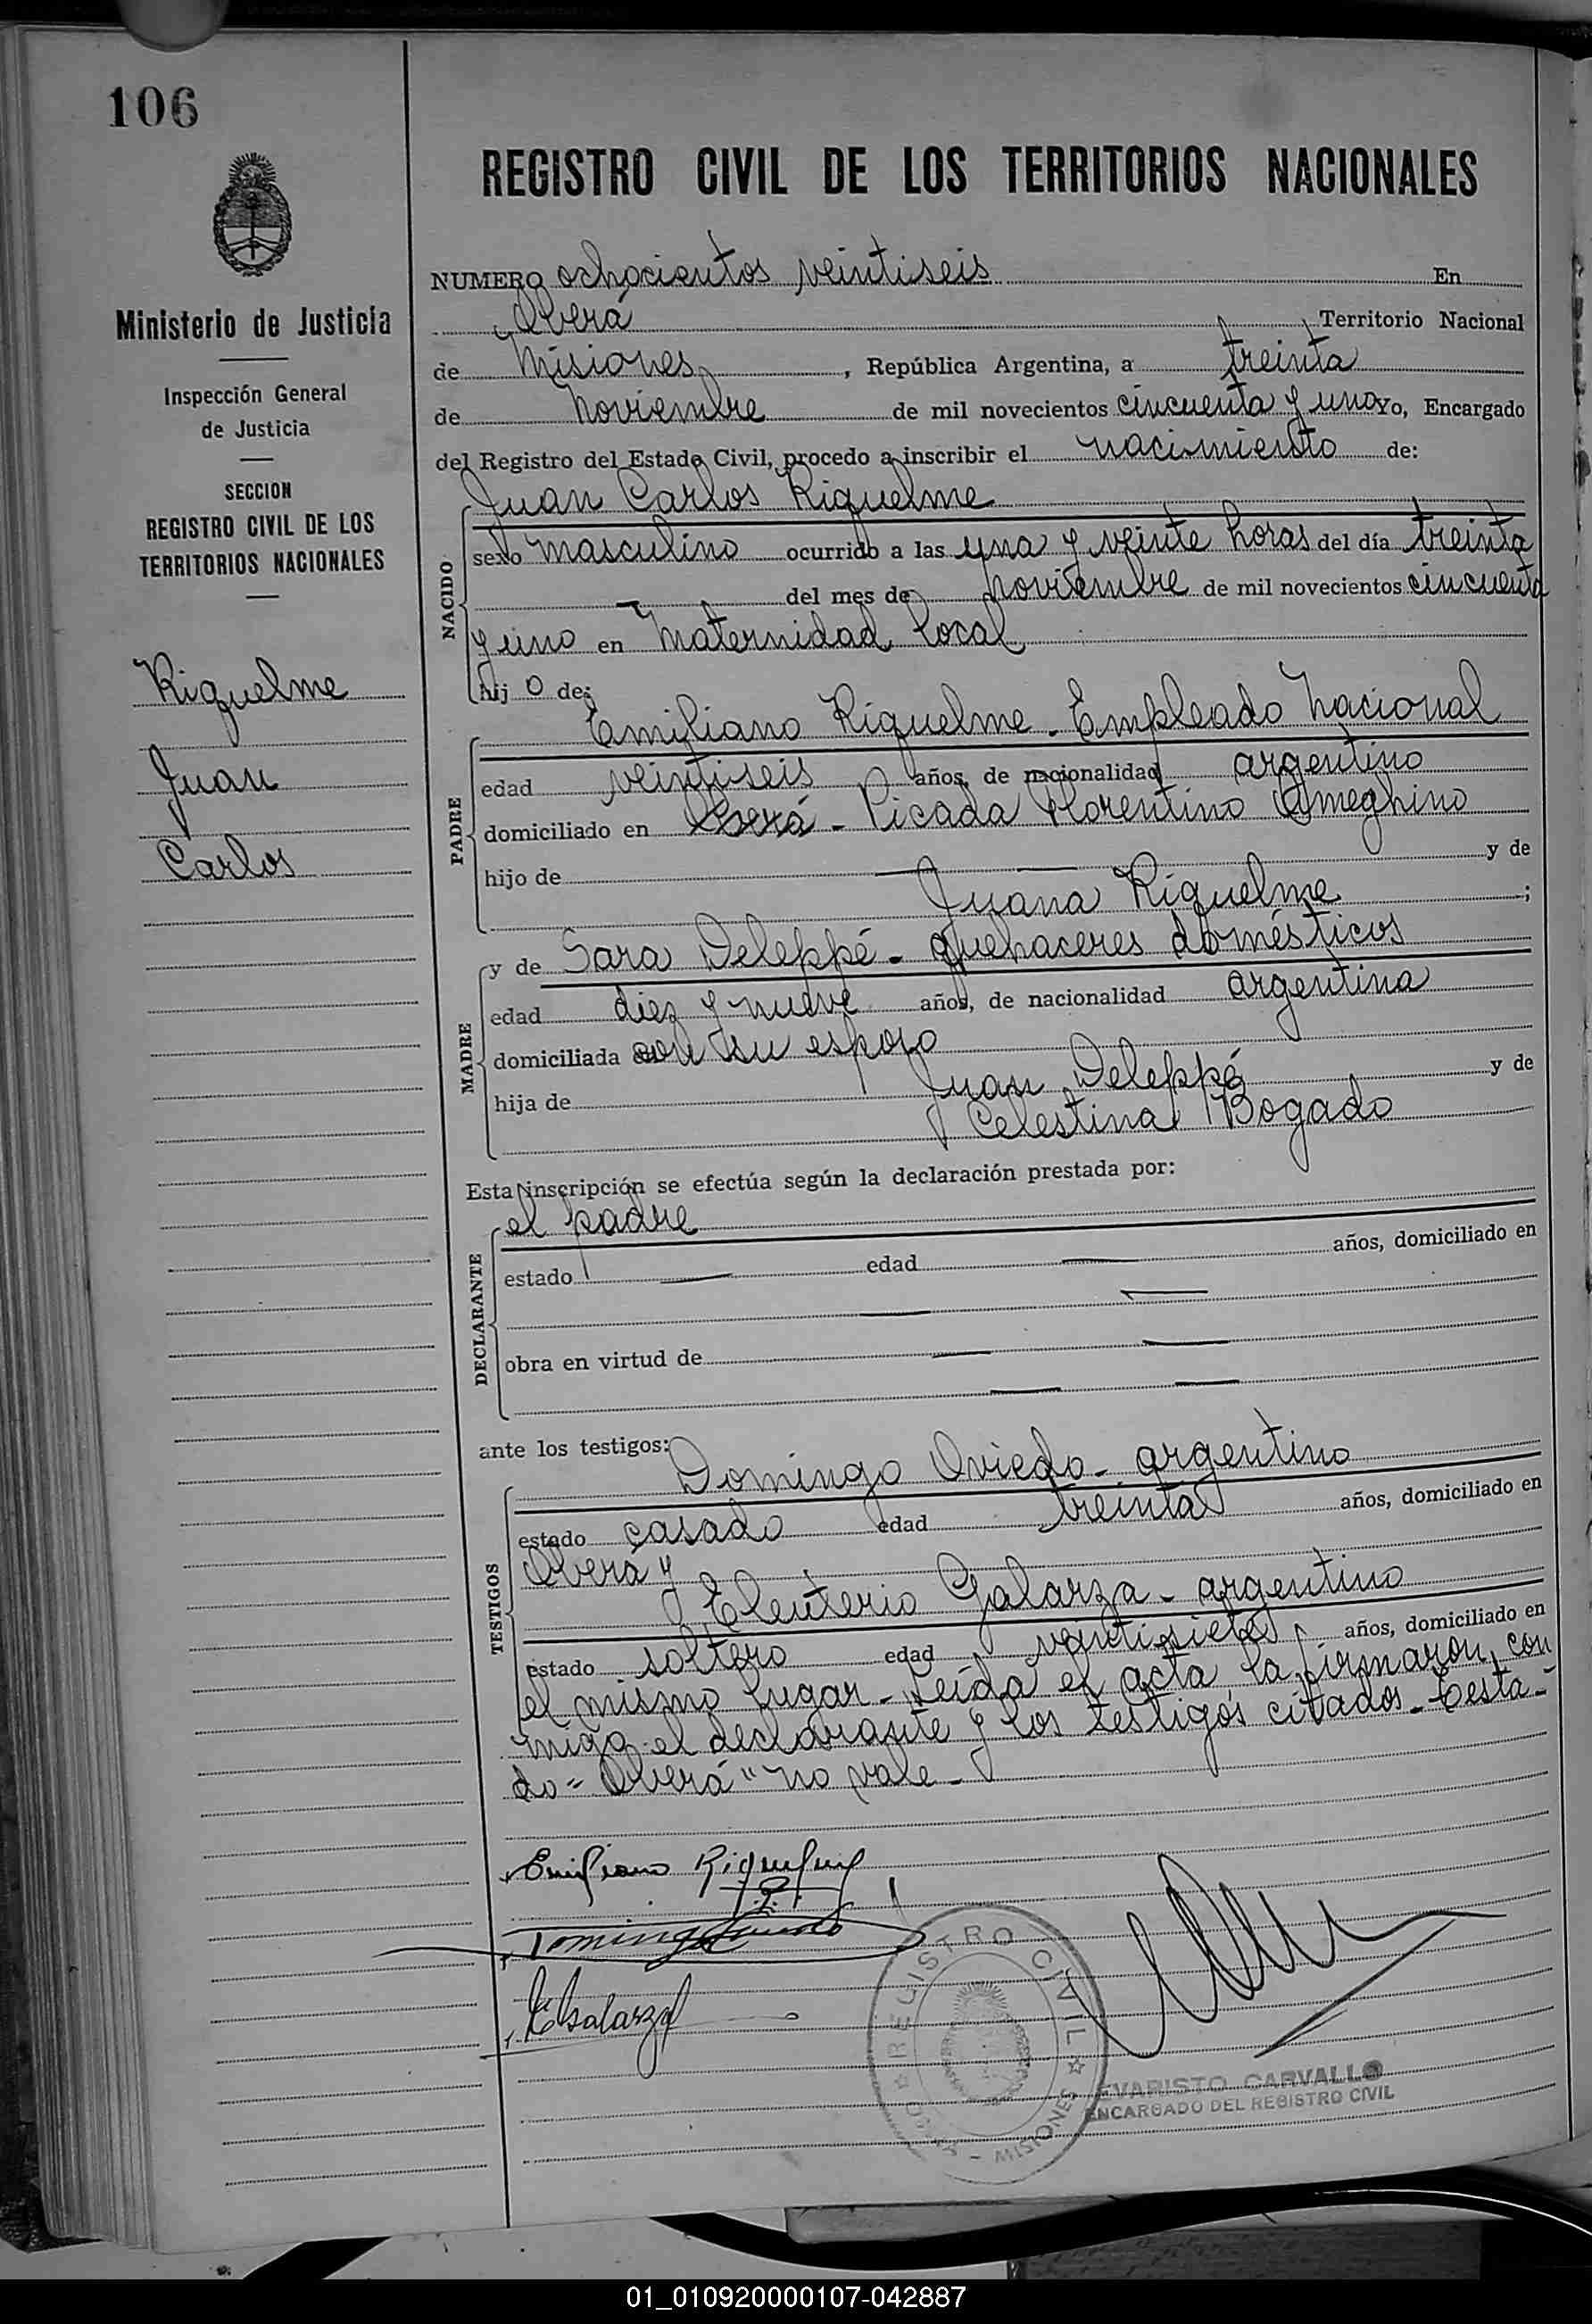 106
REGISTRO CIVIL DE LOS TERRITORIOS NACIONALES
Ministerio de Justicia
Inspección General
de Justicia
SECCION
REGISTRO CIVIL DE LOS
TERRITORIOS NACIONALES
Riquelme
Juan
Carlos
NUMERO ochocientos veintiseis En
Oberá , Territorio Nacional
de Misiones , República Argentina, a treinta
de Noviembre de mil novecientos cincuenta y uno yo, Encargado
del Registro del Estado Civil, procedo a inscribir el nacimiento de:
NACIDO
Juan Carlos Riquelme
sexo masculino ocurrido a las una y veinte horas del día treinta
del mes de noviembre de mil novecientos cincuenta
y uno en Maternidad local
hij o de:
PADRE
Emiliano Riquelme - Empleado Nacional
edad veintiseis años, de nacionalidad argentino
domiciliado en Oberá - Picada Florentino Ameghino
hijo de — — y de
Juana Riquelme ;
MADRE
y de Sara Deleppé - quehaceres domésticos
edad diez y nueve años, de nacionalidad argentina
domiciliada con su esposo
hija de Juan Deleppé y de
Celestina Bogado
Esta inscripción se efectúa según la declaración prestada por:
DECLARANTE
el padre
estado — edad — años, domiciliado en
— —
obra en virtud de — —
— —
ante los testigos:
TESTIGOS
Domingo Oviedo - argentino
estado casado edad treinta años, domiciliado en
Oberá y
Eleuterio Galarza - argentino
estado soltero edad veintisiete años, domiciliado en
el mismo lugar - Leída el acta la firmaron con
migo el declarante y los testigos citados - Testa-
do "Oberá" no vale -
Emiliano Riquelme
E Galarza
REGISTRO CIVIL
MISIONES
EVARISTO CARVALLO
ENCARGADO DEL REGISTRO CIVIL
01_010920000107-042887